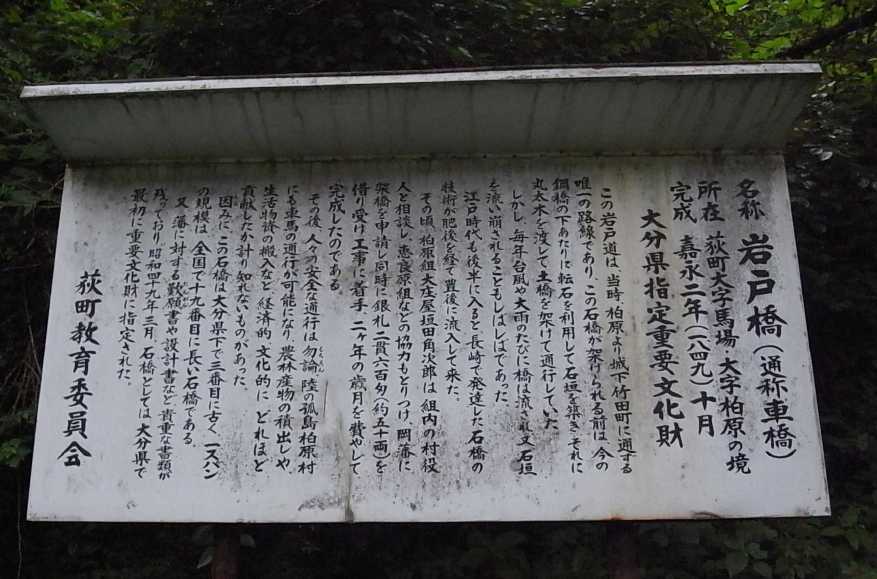 名称 岩戸橋(通称車橋)
所在 荻町大字馬場・大字柏原の境
完成 嘉永二年(一八四九)十月
大分県指定重要文化財
この岩戸道は、当時、柏原より城下竹田町に通ずる
唯一の路線であり、この石橋が架けられる前は、今の
鋼橋の下あたりに転石を利用して石垣を築き、それに
丸太木を渡して土橋を架けて通行していた。
しかし、毎年台風や大雨のたびに橋は流され、又石垣
を流い崩されることもしばしばであった。
江戸時代も後半に入ると、長崎で発達した石橋の
技術が肥後を経て豊後に流入して来た。
その頃、柏原組大庄屋垣田角次郎は、組内の村役
人と相談し、恵良原組などの協力もとりつけ、岡藩に
架橋を申請し同時に銀札二貫六百匁(約五十両)を
借り受け、工事に着手、二ヶ年の歳月を費やして
完成したのである。
その後、人々の安全な通行は勿論、陸の孤島柏原村
にも車馬の通行が可能になり、農林産物の積出しや、
生活物資の搬入など経済的、文化的に、どれほど
貢献したか計り知れないものがあった。
因みに、この石橋は大分県下で三番目に古く、一スパン
の規模は、全国で十九番目に長い石橋である。
又、藩に対する歎願書や設計書など貴重な書類が
残っており、昭和四十九年三月、石橋としては大分県で
最初に重要文化財に指定された。
荻町教育委員会